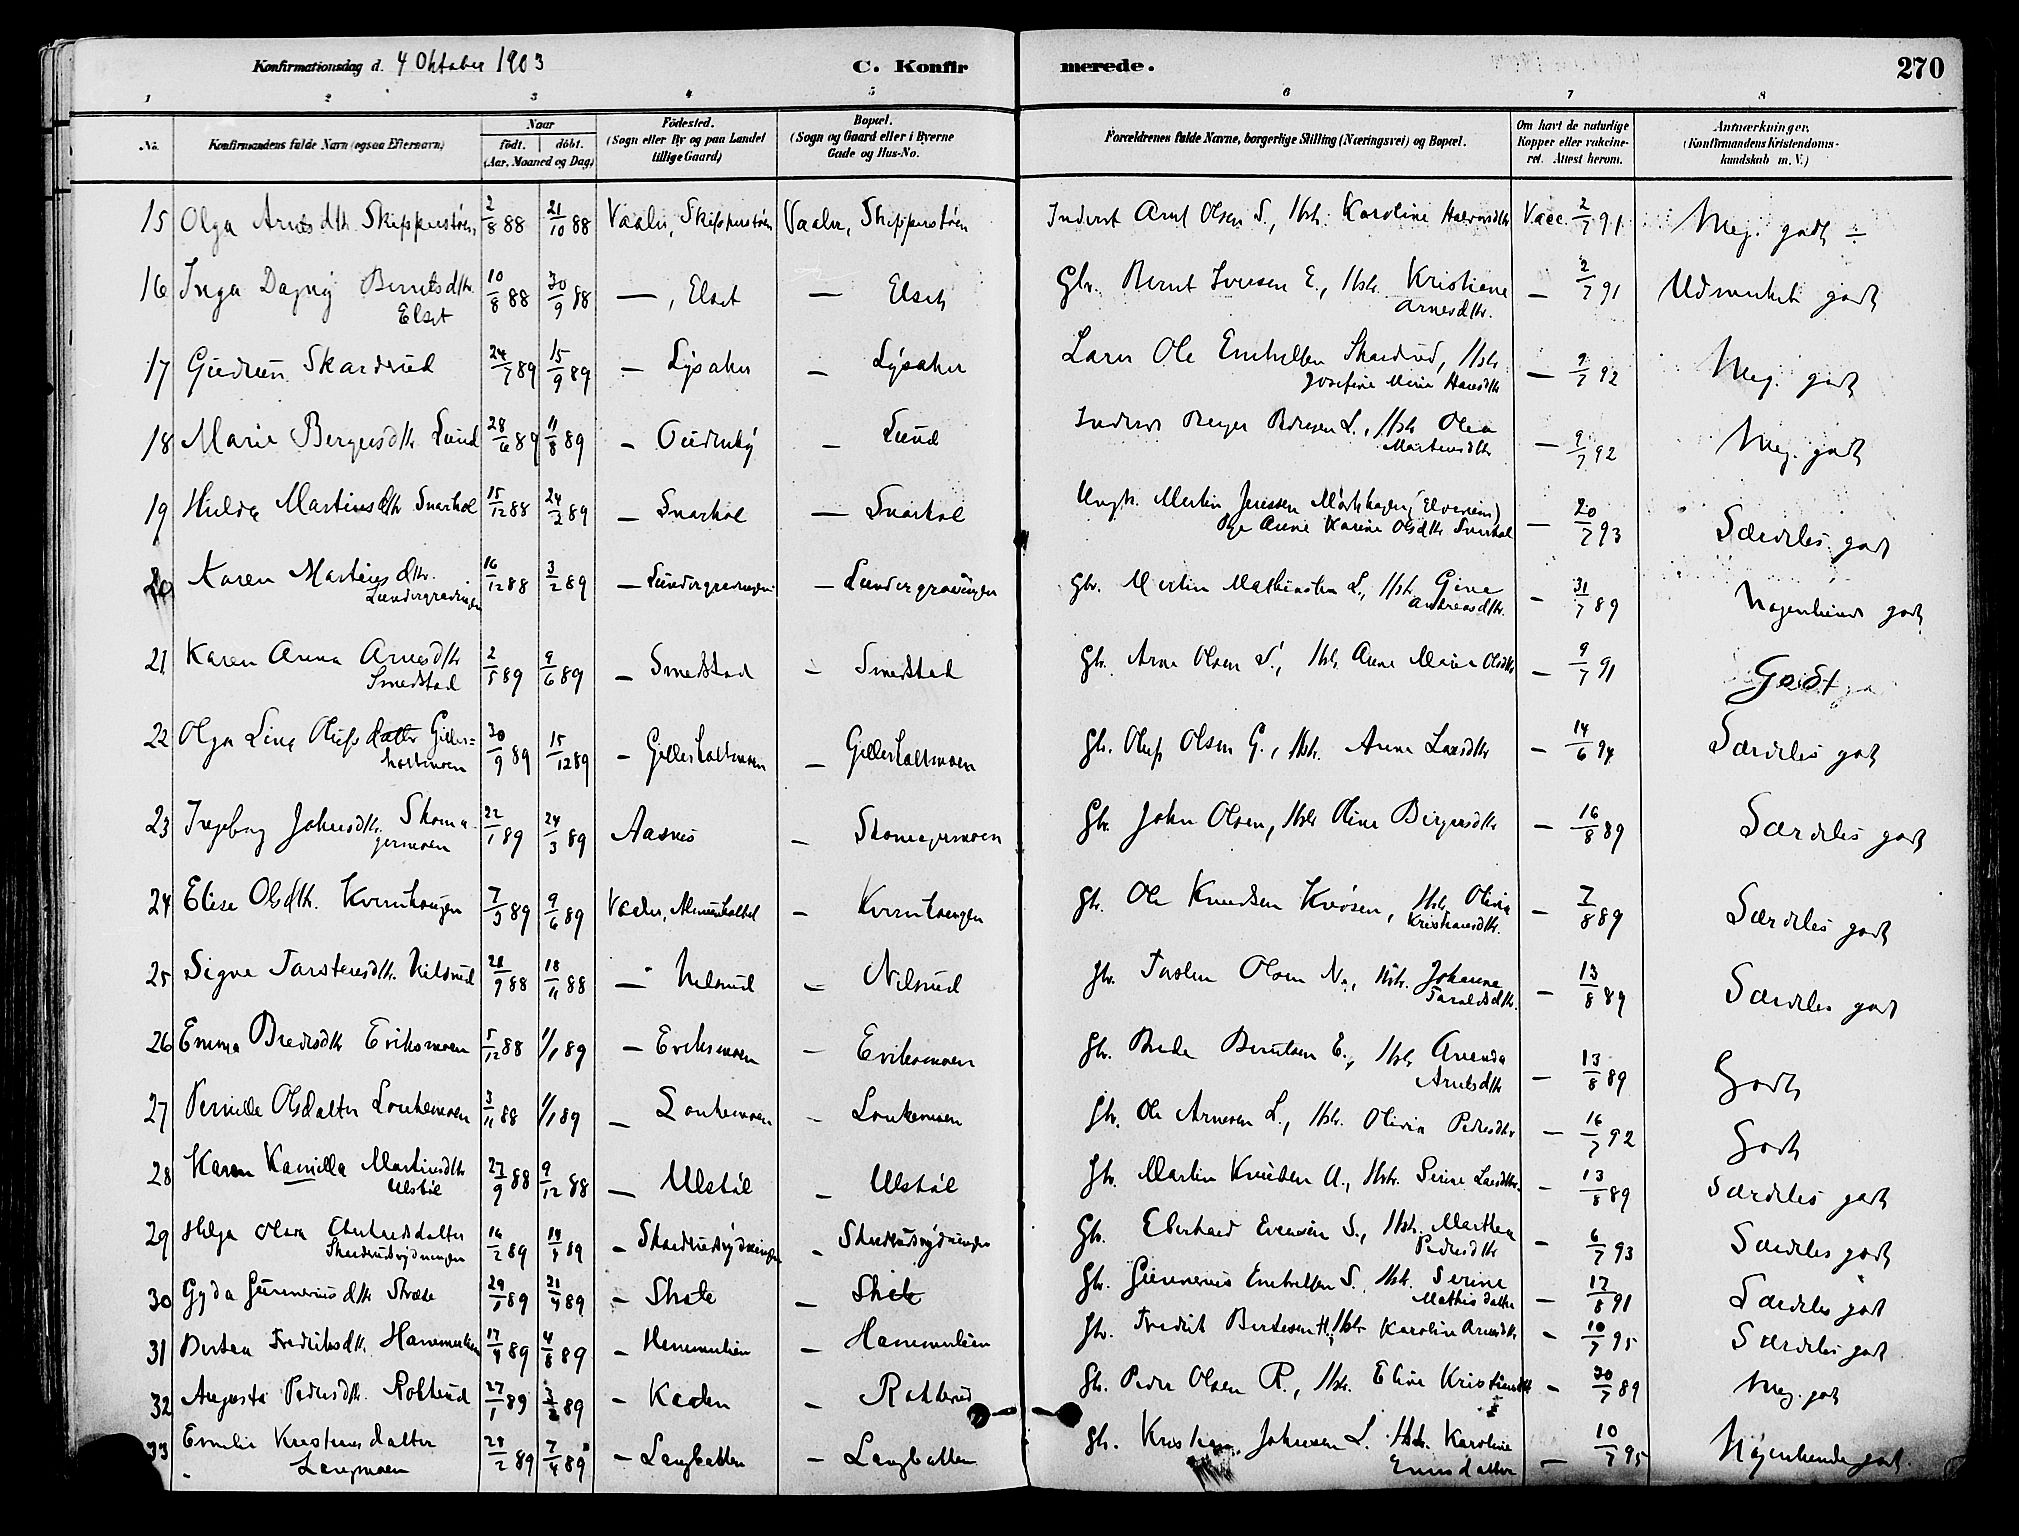 Konfirmationsdag d. 4 Oktober 1903
C. Konfirmerede.
270
1 2 3 4 5 6 7 8
No.
Konfirmandens fulde Navn (ogsaa Efternavn)
Naar
födt. döbt.
(Aar, Maaned og Dag)
Födested.
(Sogn eller By og paa Landet
tillige Gaard)
Bopæl.
(Sogn og Gaard eller i Byerne
Gade og Hus-No.
Forældrenes fulde Navne, borgerlige Stilling (Næringsvei) og Bopæl.
Om havt de naturlige
Kopper eller vakcine-
ret. Attest herom.
Anmærkninger.
(Konfirmandens Kristendoms-
kundskab m. V.)
15 Olga Arntsdtr. 2/8 88 21/10 88 Vaaler, Vaaler, Arnt Olsen S., Hstr. Karoline Halvorsdtr Vacc. 2/7 91 Meg. godt
16 Inga Dagny Berntsdtr. 10/8 88 30/9 88 —, Elset — Elset Gbr. Bernt Iversen E., Hstr. Kristiane — 2/7 91 Udmerket godt
Elset Arnesdtr.
17 Gudrun Skarderud 24/7 89 15/9 89 — Lysaker — Lysaker Lærer Ole Skarderud, Hstr. — 9/7 92 Meg. godt
Josefine
18 Marie Bergersdtr Lund 28/6 89 11/8 89 — — Lund Berger L., Hstr. Olea — 9/7 92 Meg. godt
Martensdtr
19 Hulda Martinsdtr Snarhol 15/12 88 24/2 89 — Snarhol — Snarhol Ungk. Martin (Elverum) — 20/7 93 Særdeles godt
Pige Anne Karine Olsdtr Snarhol
20 Karen Martinsdtr. 16/12 88 3/2 89 — — Gbr. Martin L., Hstr. Gina — 31/7 89 Nogenlunde godt
Andreasdtr.
21 Karen Anna Arnesdtr 2/5 89 9/6 89 — Smedstad — Smedstad Gbr. Arne Olsen S., Hstr. Anne Marie Olsdtr — 9/7 91 Godt
Smedstad
22 Olga Lina Olufsdatter 30/9 89 15/12 89 — — Gbr. Oluf Olsen G., Hstr. Anne Larsdtr — 14/6 94 Særdeles godt
23 Ingeborg Johnsdtr. Skoma- 22/1 89 24/3 89 Aasnes — Skomagermoen Gbr. John Olsen, Hstr. Oline Birgersdtr — 16/8 89 Særdeles godt
germoen
24 Elise Olsdtr. Kvernhaugen 7/3 89 9/6 89 Vaaler, — Kvernhaugen Gbr. Ole Knudsen, Hstr. Olivia — 7/8 89 Særdeles godt
Kristiansdtr.
25 Signe Tarstensdtr. Nilsrud 28/9 88 18/11 88 — Nilsrud — Nilsrud Gbr. Tarsten Olsen N., Hstr. Johanne — 13/8 89 Særdeles godt
Taraldsdtr.
26 Emma Bredesdtr Eriksmoen 5/12 88 1/1 89 — Eriksmoen — Eriksmoen Gbr. Brede Berntsen E., Hstr. — 13/8 89 Godt
Arntsdtr
27 Pernille Olsdatter Loukemoen 3/11 88 1/1 89 — Loukemoen — Loukemoen Gbr. Ole Arnesen L., Hstr. Olivia Pedersdtr — 16/7 92 Godt
28 Karen Kamilla Martinsdtr 27/9 88 9/12 88 — Ulstöl — Ulstöl Gbr. Martin Knudsen U., Hstr. Serine Larsdtr. — 13/8 89 Særdeles godt
Ulstöl
29 Helga Olava Eberhardsdatter — — Gbr. Eberhard Evensen S., Hstr. Marthea — 6/7 93 Særdeles godt
Skarderudsrydningen Pedersdtr
30 Gyda Gunneriusdtr 29/1 89 21/4 89 — — Gbr. Gunnerius S. Hstr. Serine — 17/8 91 Særdeles godt
Mathisdatter
31 Fredriksdtr. 17/4 89 4/8 89 — — Gbr. Fredrik H., Hstr. Karoline Arnesdtr — 10/7 95 Særdeles godt
32 Augusta Pedersdtr. 27/1 89 — — Gbr. Peder Olsen R., Hstr. Eline — 30/7 89 Meg. godt
33 Emilie Kristiansdatter 28/2 89 7/4 89 — Langbatten — Langbatten Gbr. Kristian Johnsen L. Hstr. Karoline — 10/7 95 Nogenlunde godt.
Langmoen